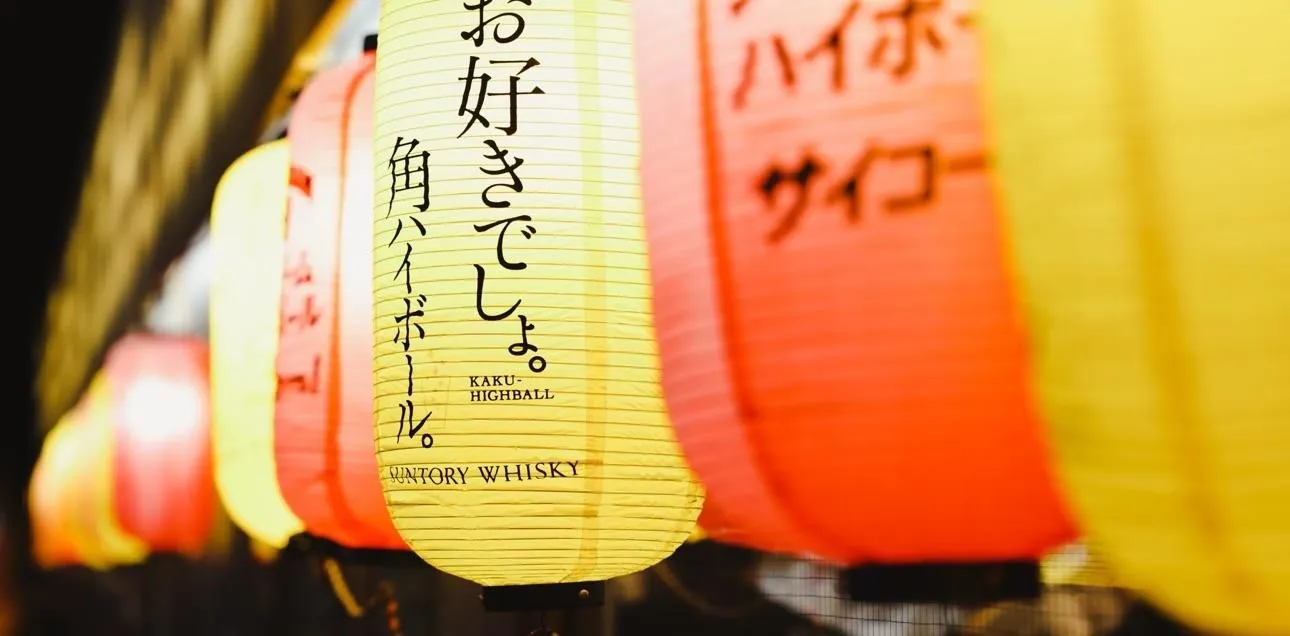 お好きでしょ。
角ハイボール。
KAKU-
HIGHBALL
SUNTORY WHISKY
ハイボー
サイコー